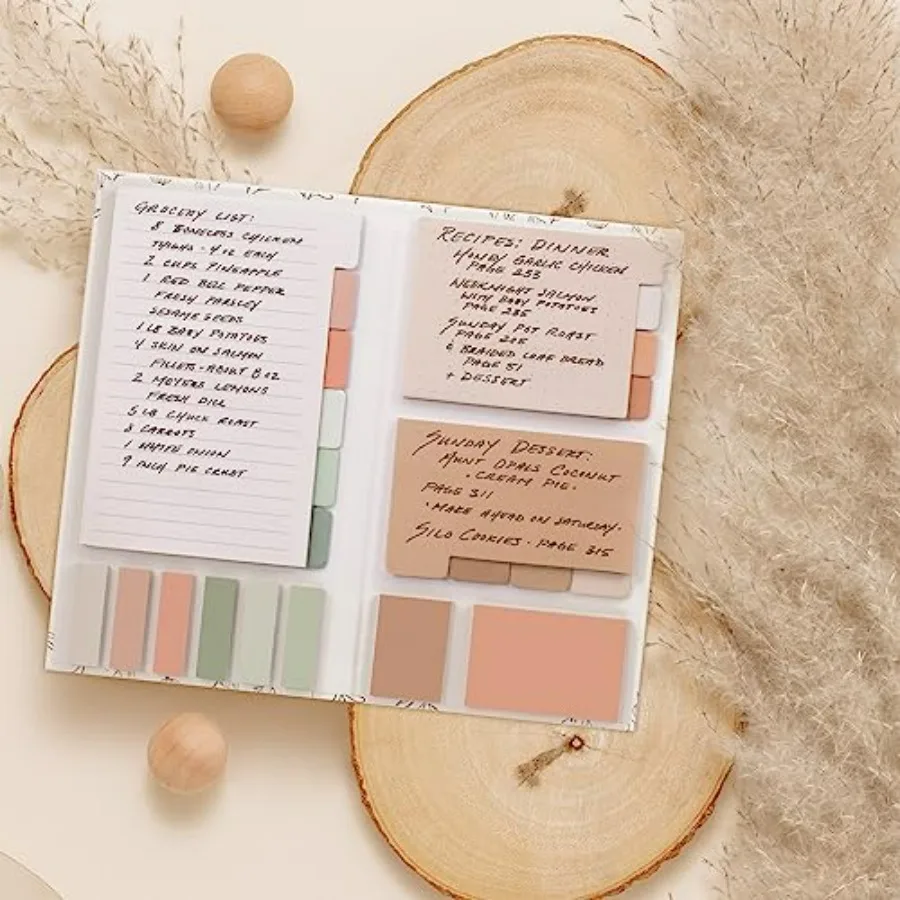 GROCERY LIST:
8 BONELESS CHICKEN
THIGHS - 4 OZ EACH
2 CUPS PINEAPPLE
1 RED BELL PEPPER
FRESH PARSLEY
SESAME SEEDS
1 LB BABY POTATOES
4 SKIN ON SALMON
FILLETS - ABOUT 8 OZ
2 MEYERS LEMONS
FRESH DILL
5 LB CHUCK ROAST
8 CARROTS
1 WHITE ONION
9 INCH PIE CRUST
RECIPES: DINNER
HONEY GARLIC CHICKEN
PAGE 253
WEEKNIGHT SALMON
WITH BABY POTATOES
PAGE 235
SUNDAY POT ROAST
PAGE 205
BRAIDED LOAF BREAD
PAGE 51
+ DESSERT
SUNDAY DESSERT:
AUNT OPALS COCONUT
• CREAM PIE •
PAGE 311
• MAKE AHEAD ON SATURDAY •
SILO COOKIES • PAGE 315